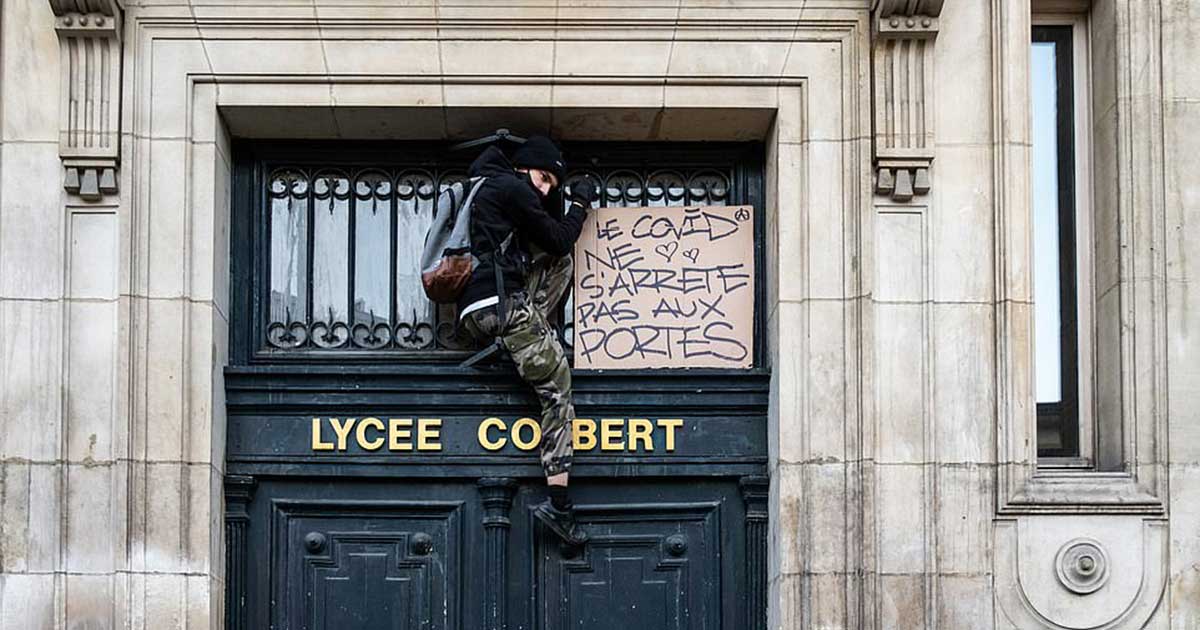 LE COVID
NE
S'ARRETE
PAS AUX
PORTES
LYCEE COLBERT